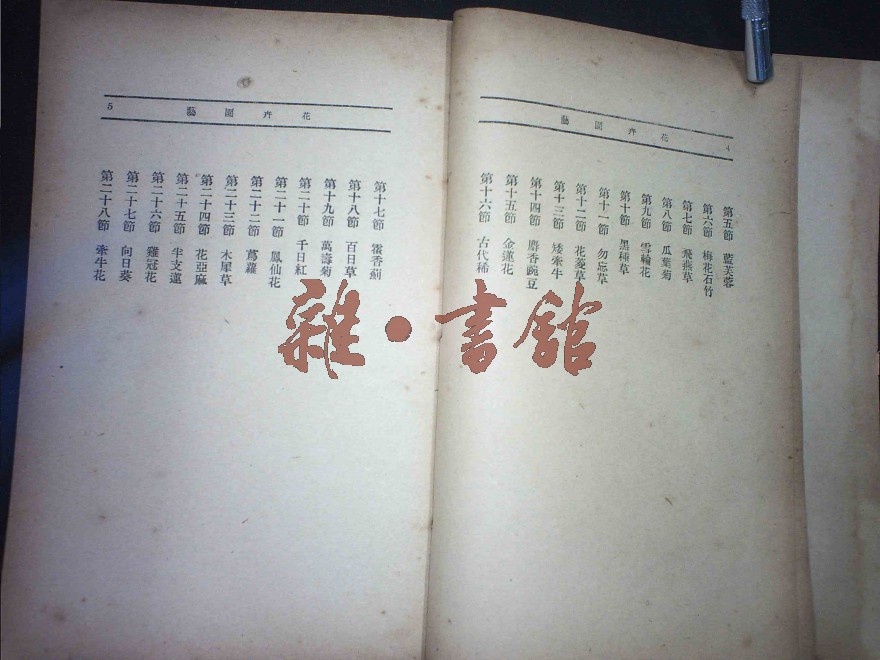 花卉園藝
4
第五節 藍芙蓉
第六節 梅花石竹
第七節 飛燕草
第八節 瓜葉菊
第九節 雪輪花
第十節 黑種草
第十一節 勿忘草
第十二節 花菱草
第十三節 矮牽牛
第十四節 麝香豌豆
第十五節 金蓮花
第十六節 古代稀
花卉園藝
5
第十七節 霍香薊
第十八節 百日草
第十九節 萬壽菊
第二十節 千日紅
第二十一節 鳳仙花
第二十二節 蔦蘿
第二十三節 木犀草
第二十四節 花亞麻
第二十五節 半支蓮
第二十六節 雞冠花
第二十七節 向日葵
第二十八節 牽牛花
雜·書館